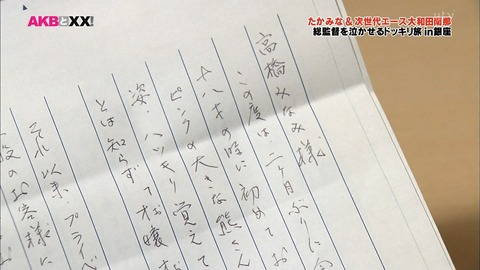 AKBとXX!
ytv
たかみな&次世代エース大和田南那
総監督を泣かせるドッキリ旅in銀座
高橋みなみ様
この度は、二ヶ月ぶりに
十八才の時に初めてお
ピンクの大きな熊くん
姿、ハッキリ覚えて
とは知らず
それ以来、プライベ
のお客様に